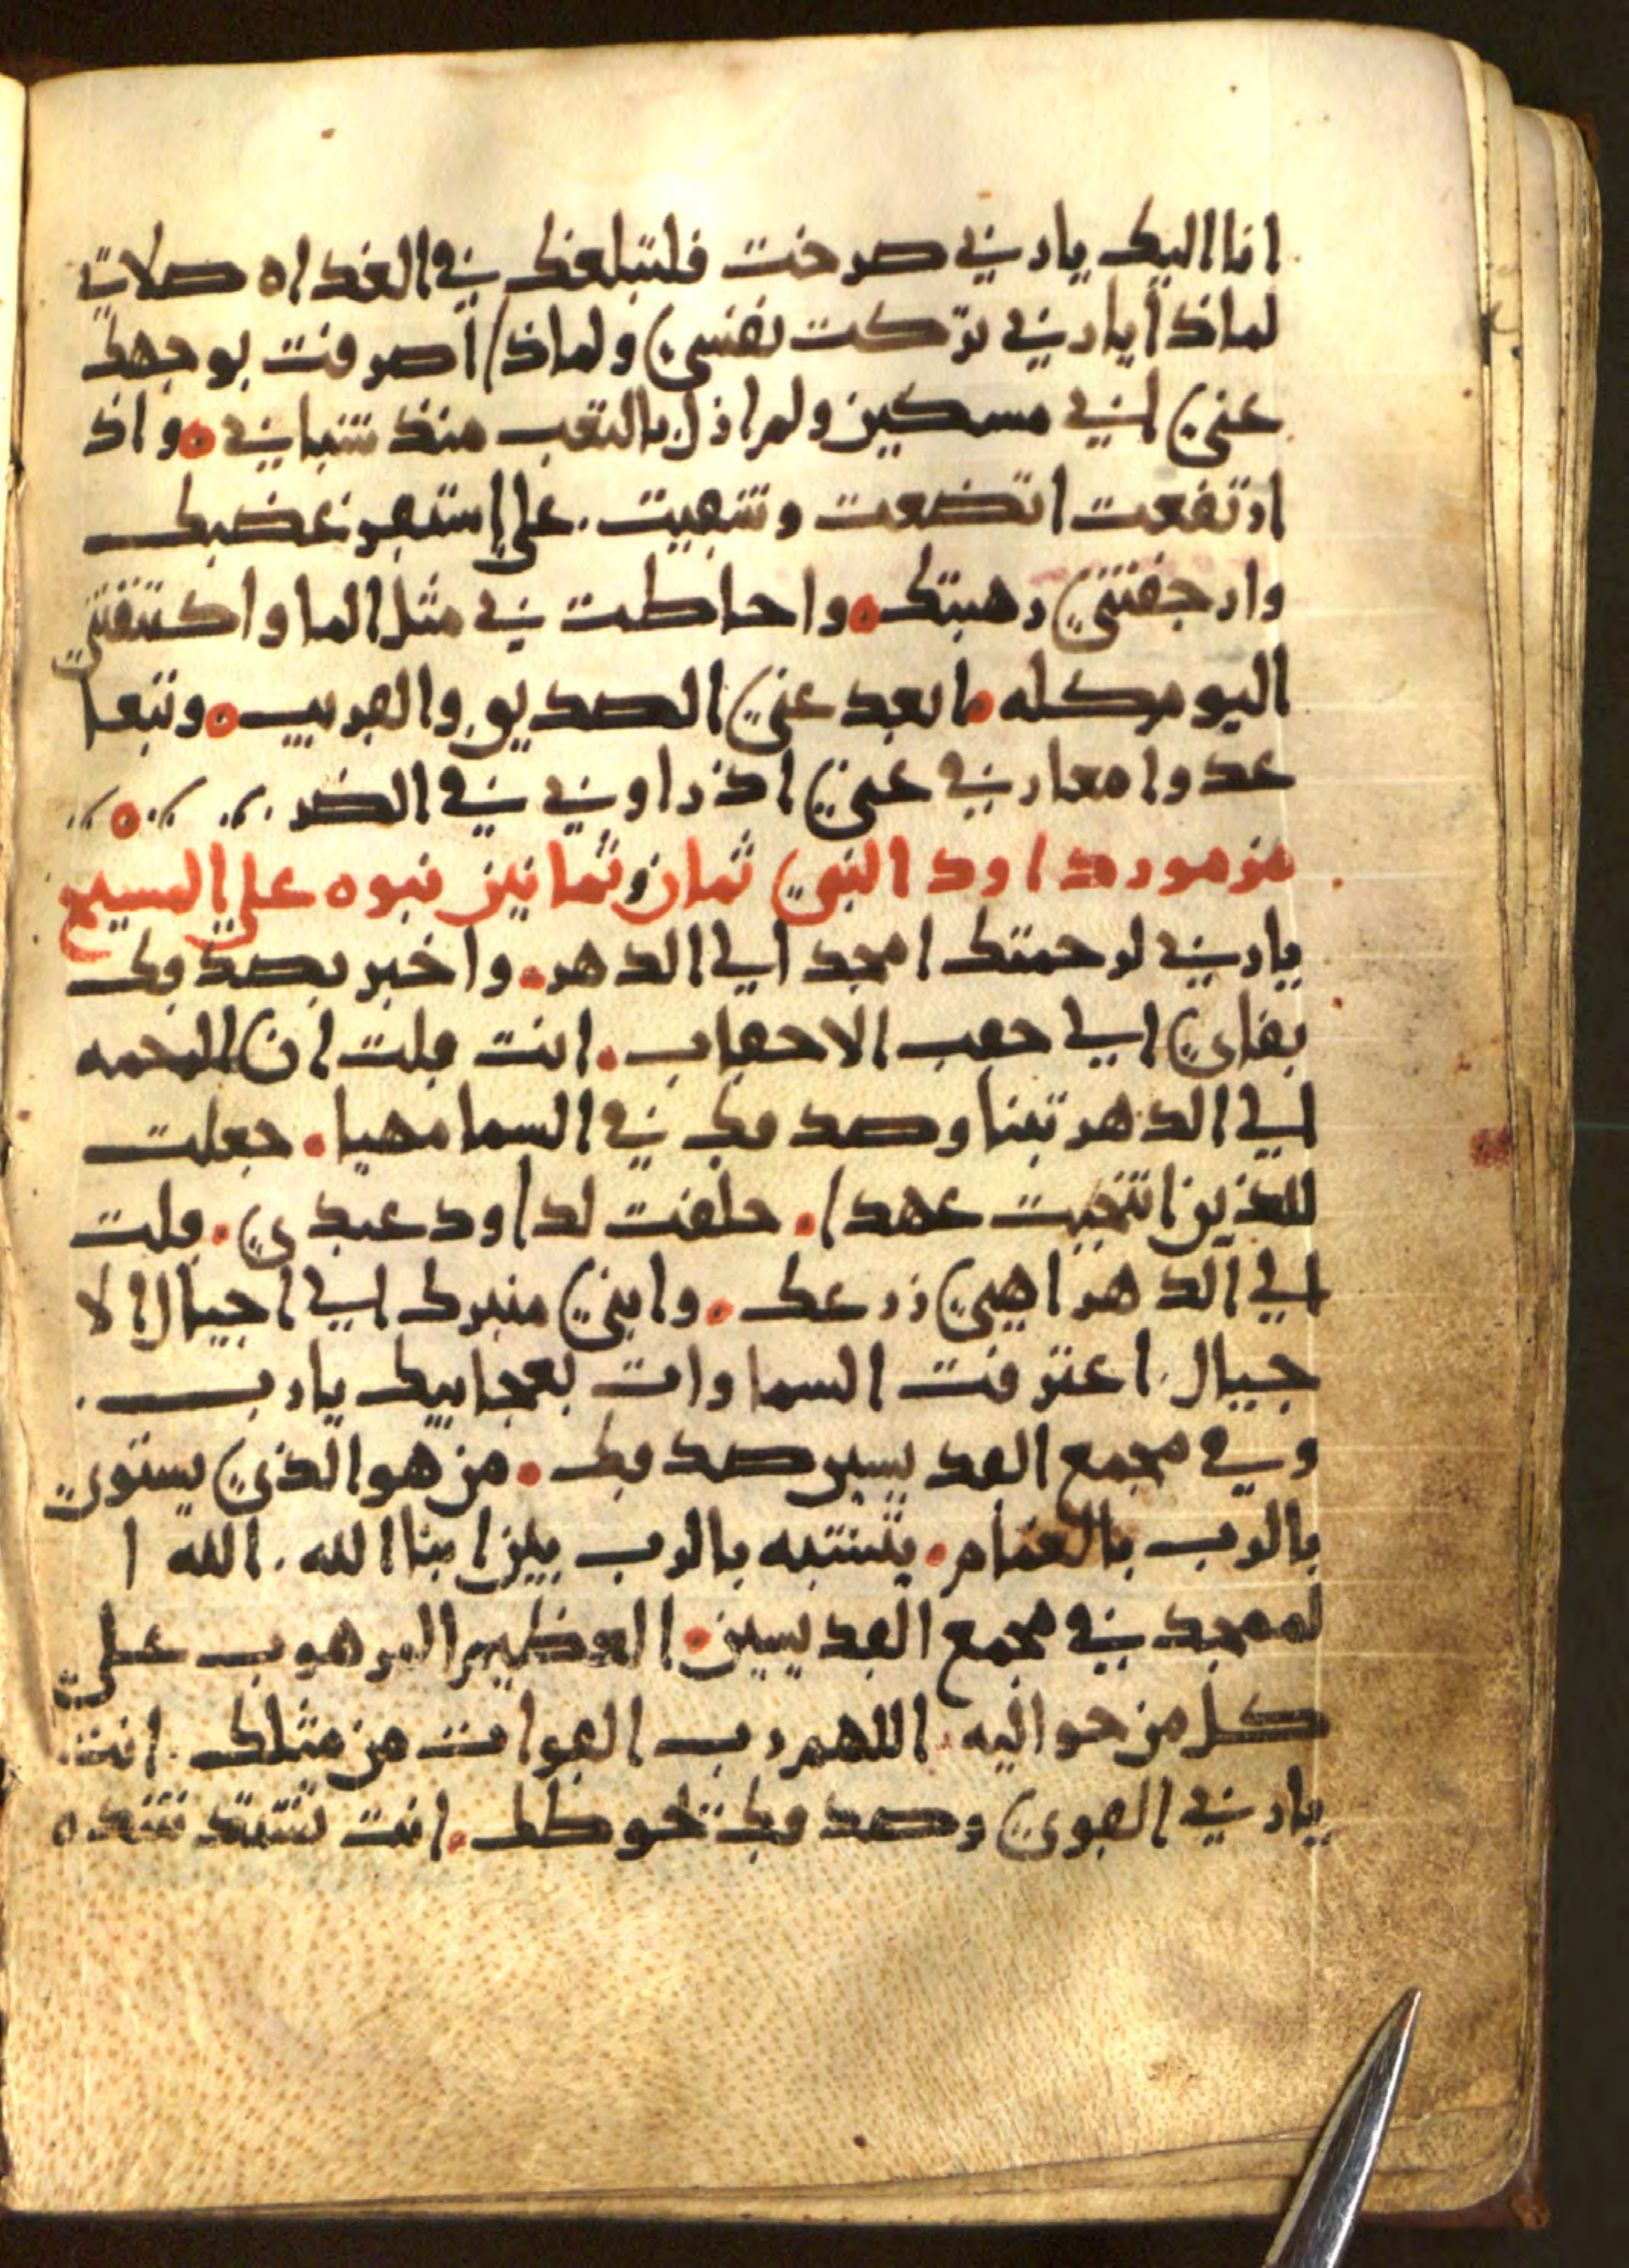 انا اليك يا رب صرخت فلتبلغك في الغداه صلاتي
لماذا يا رب تركت نفسي ولماذا اصرفت بوجهك
عني اني مسكين ولم ازل بالتعب منذ شبابي ٥ واذ
ارتفعت اتضعت وتبهيت . علي استقر غضبك
وارجفتني رهبتك ٥ واحاطت بي مثل الما واكتنفتني
اليوم كله ٠ ابعد عني الصديق والقريب ٥ وتبعا
عدوا معارفي عني اذ راوني في الضر
مزمور داود النبي ثمان وثمانين نبوه علي المسيح
يا رب لرحمتك امجد الي الدهر ٠ واخبر بصدقك
بفاي الي حقب الاحقاب ٠ انت قلت ان الرحمه
الي الدهر تبنا وصدقك في السما مهيا ٠ جعلت
للذين انتخبت عهدا ٠ حلفت لداود عبدي ٠ قلت
الي الدهر اهيي زرعك ٠ وابني منبرك الي اجيال الا
جيال . اعترفت السماوات بعجايبك يا رب .
وفي مجمع القديسين صدقك ٠ من هو الذي يستوي
بالرب بالغمام ٠ يتشبه بالرب بين ابنا الله . الله ا
لممجد في مجمع القديسين ٠ العظيم المرهوب علي
كل من حواليه . اللهم رب القوات من مثلك . انت
يا رب القوي وصدقك تحوطك ٠ انت تشتد شده